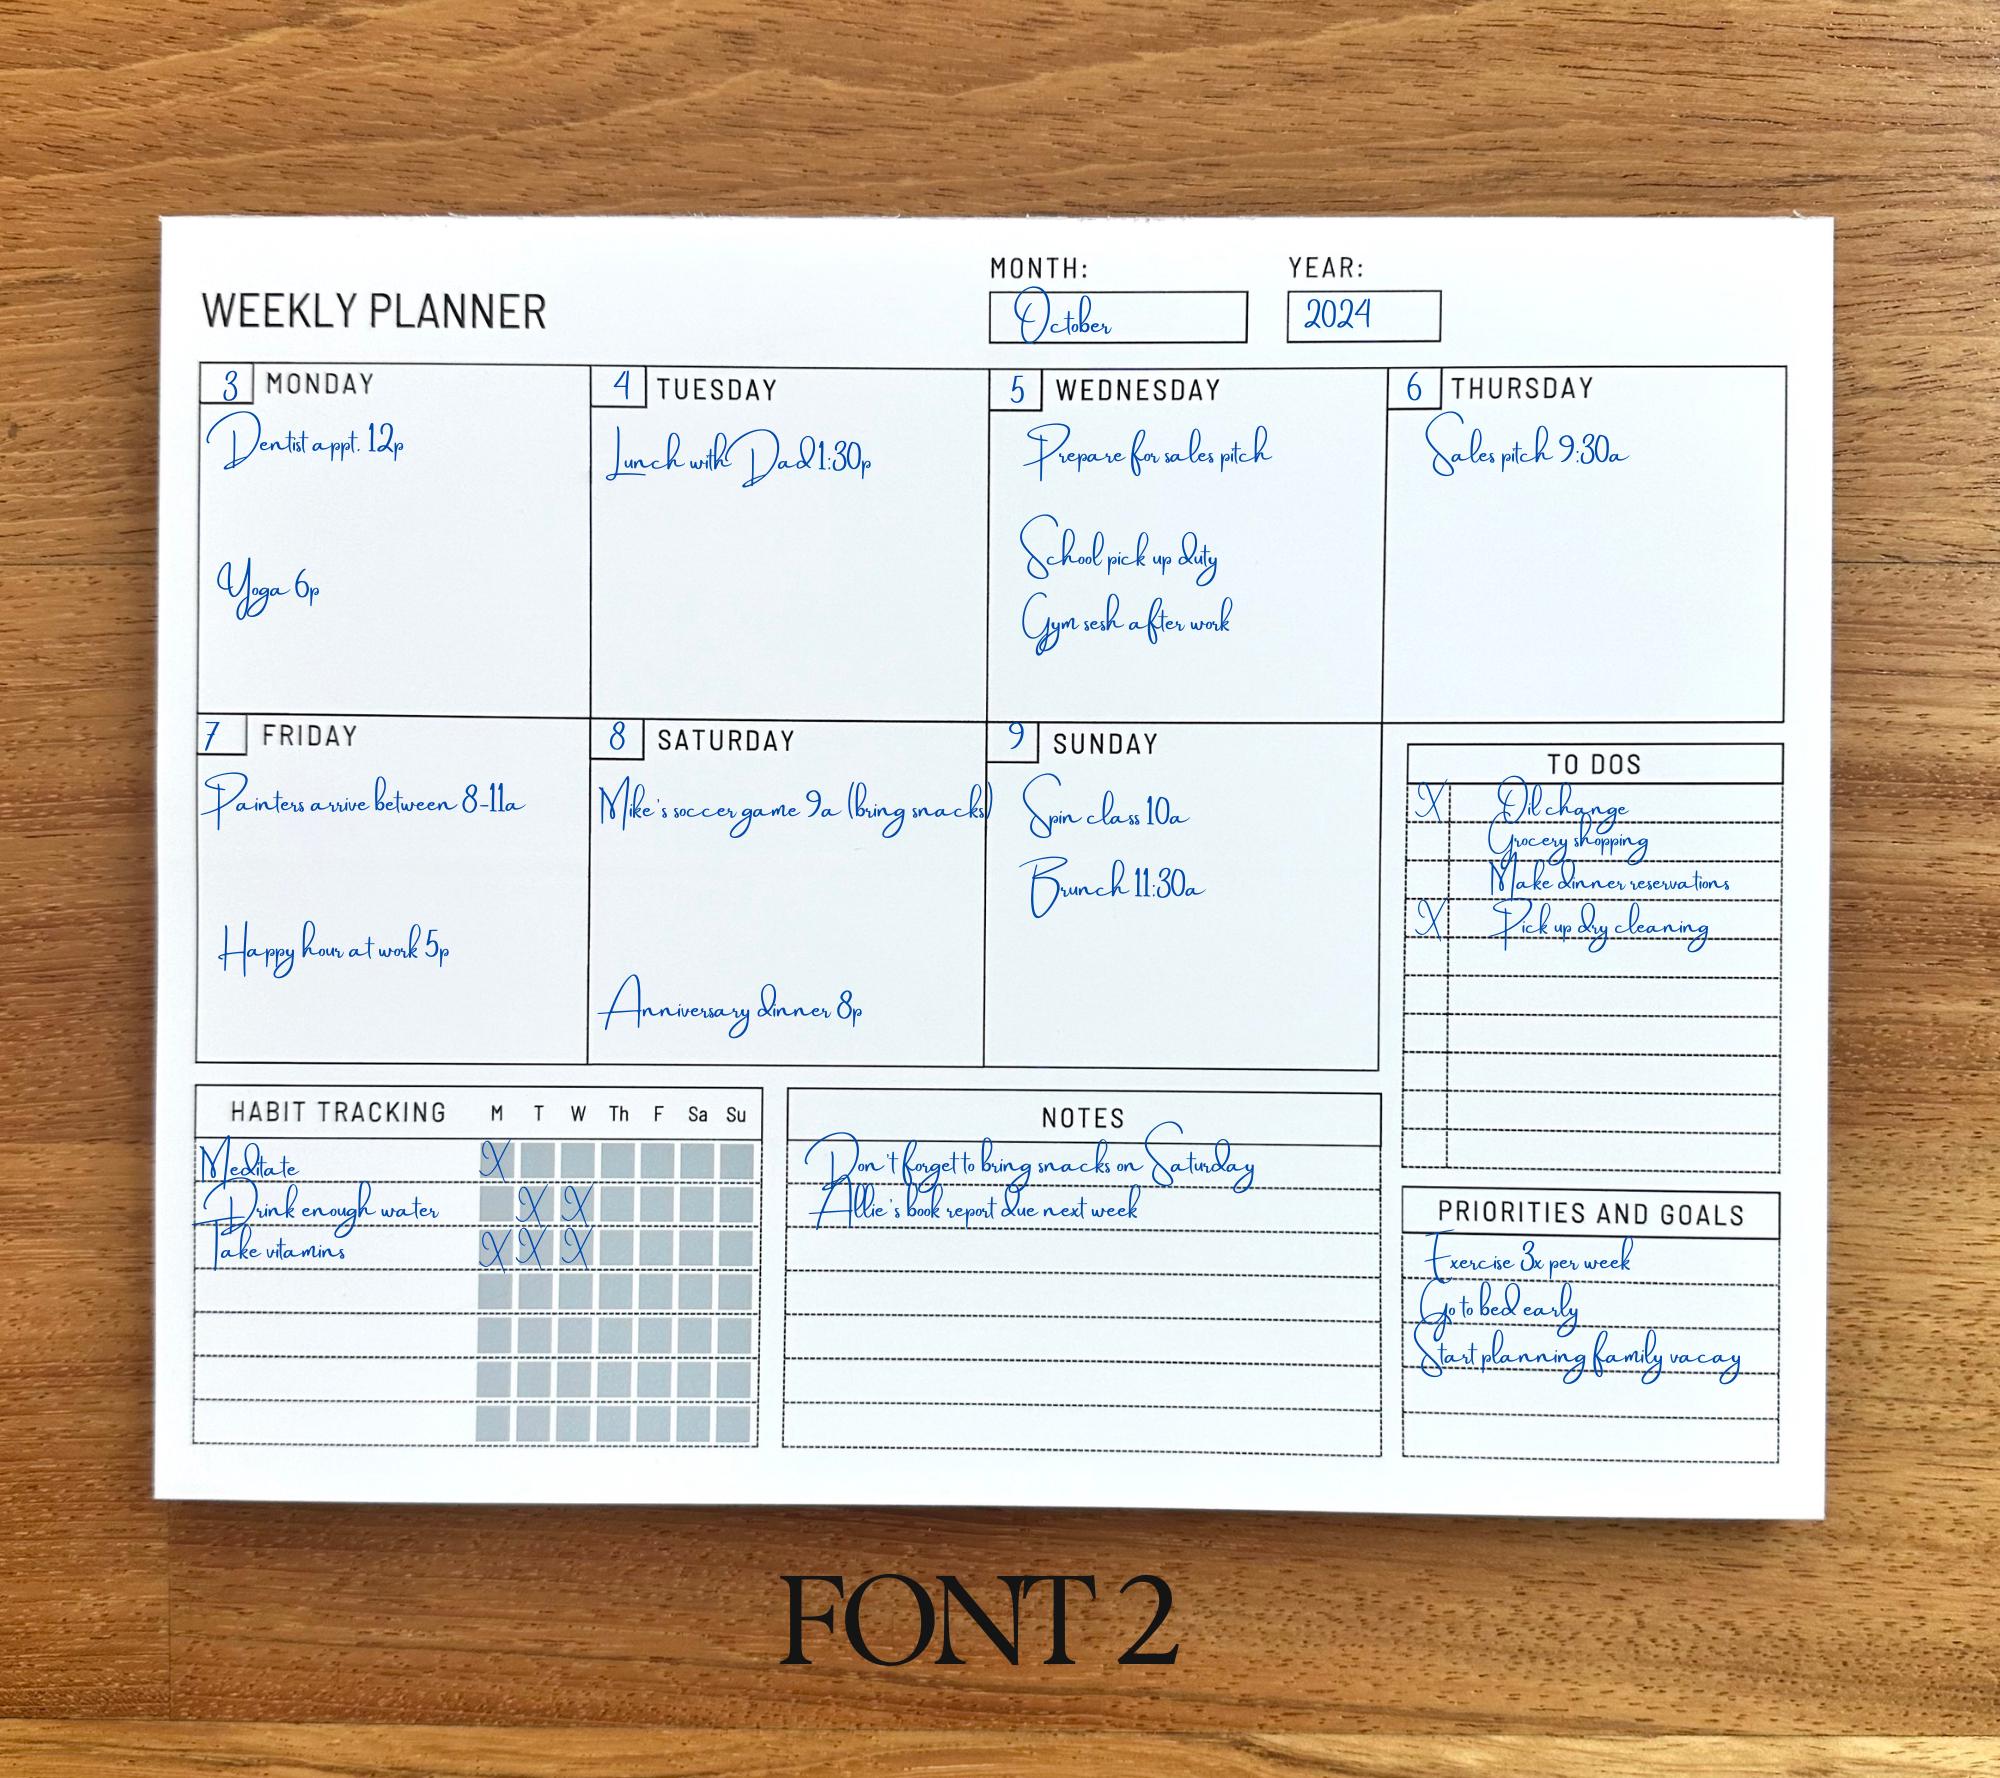 WEEKLY PLANNER
MONTH:
October
YEAR:
2024
3 MONDAY
Dentist appt. 12p
Yoga 6p
4 TUESDAY
Lunch with Dad 1:30p
5 WEDNESDAY
Prepare for sales pitch
School pick up duty
Gym sesh after work
6 THURSDAY
Sales pitch 9:30a
7 FRIDAY
Painters arrive between 8-11a
Happy hour at work 5p
8 SATURDAY
Mike's soccer game 9a (bring snacks)
Anniversary dinner 8p
9 SUNDAY
Spin class 10a
Brunch 11:30a
TO DOS
X Oil change
Grocery shopping
Make dinner reservations
X Pick up dry cleaning
HABIT TRACKING M T W Th F Sa Su
Meditate X
Drink enough water X X
Take vitamins X X X
NOTES
Don't forget to bring snacks on Saturday
Allie's book report due next week
PRIORITIES AND GOALS
Exercise 3x per week
Go to bed early
Start planning family vacay
FONT 2